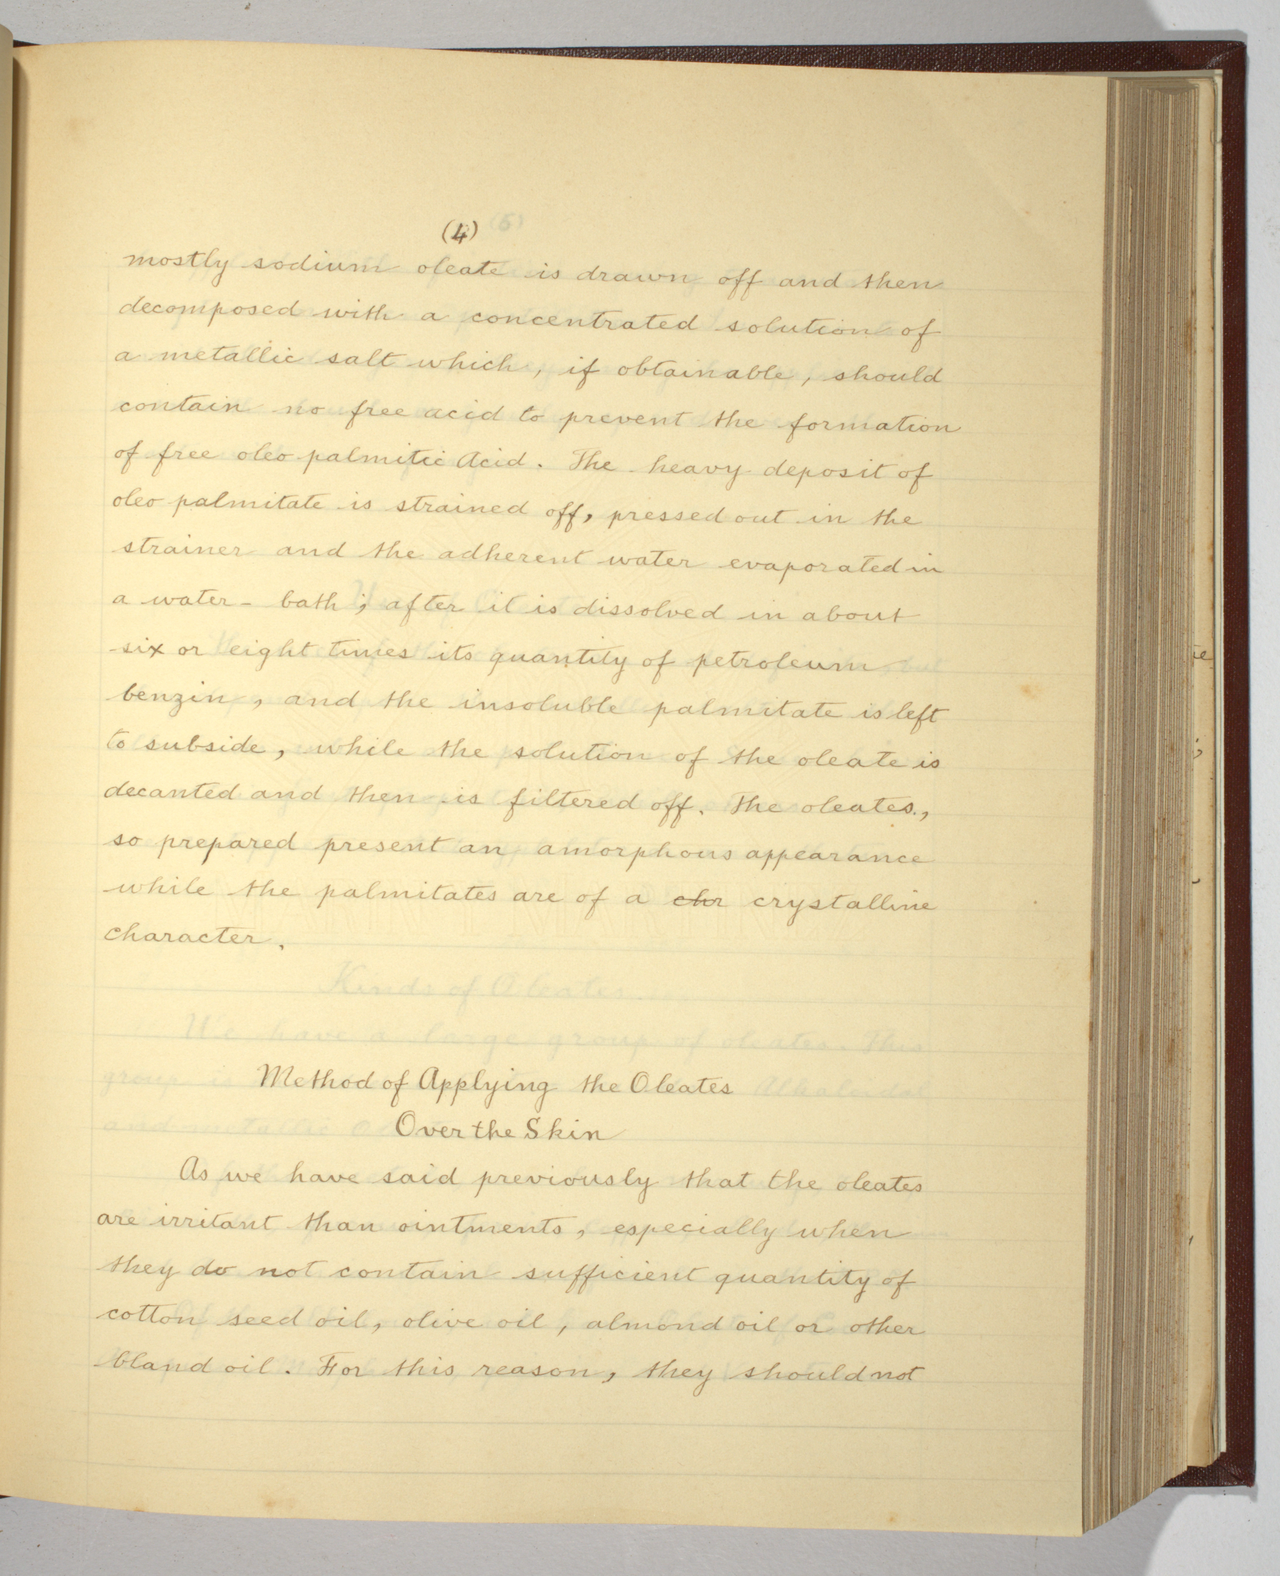 (4)
mostly sodium oleate is drawn off and then
decomposed with a concentrated solution of
a metallic salt which, if obtainable, should
contain no free acid to prevent the formation
of free oleo palmitic Acid. The heavy deposit of
oleo palmitate is strained off, pressed out in the
strainer and the adherent water evaporated in
a water-bath; after it is dissolved in about
six or eight times its quantity of petroleum
benzin, and the insoluble palmitate is left
to subside, while the solution of the oleate is
decanted and then is filtered off. The oleates,
so prepared present an amorphous appearance
while the palmitates are of a chr crystalline
character.
Method of Applying the Oleates
Over the Skin
As we have said previously that the oleates
are irritant than ointments, especially when
they do not contain sufficient quantity of
cotton seed oil, olive oil, almond oil or other
bland oil. For this reason, they should not